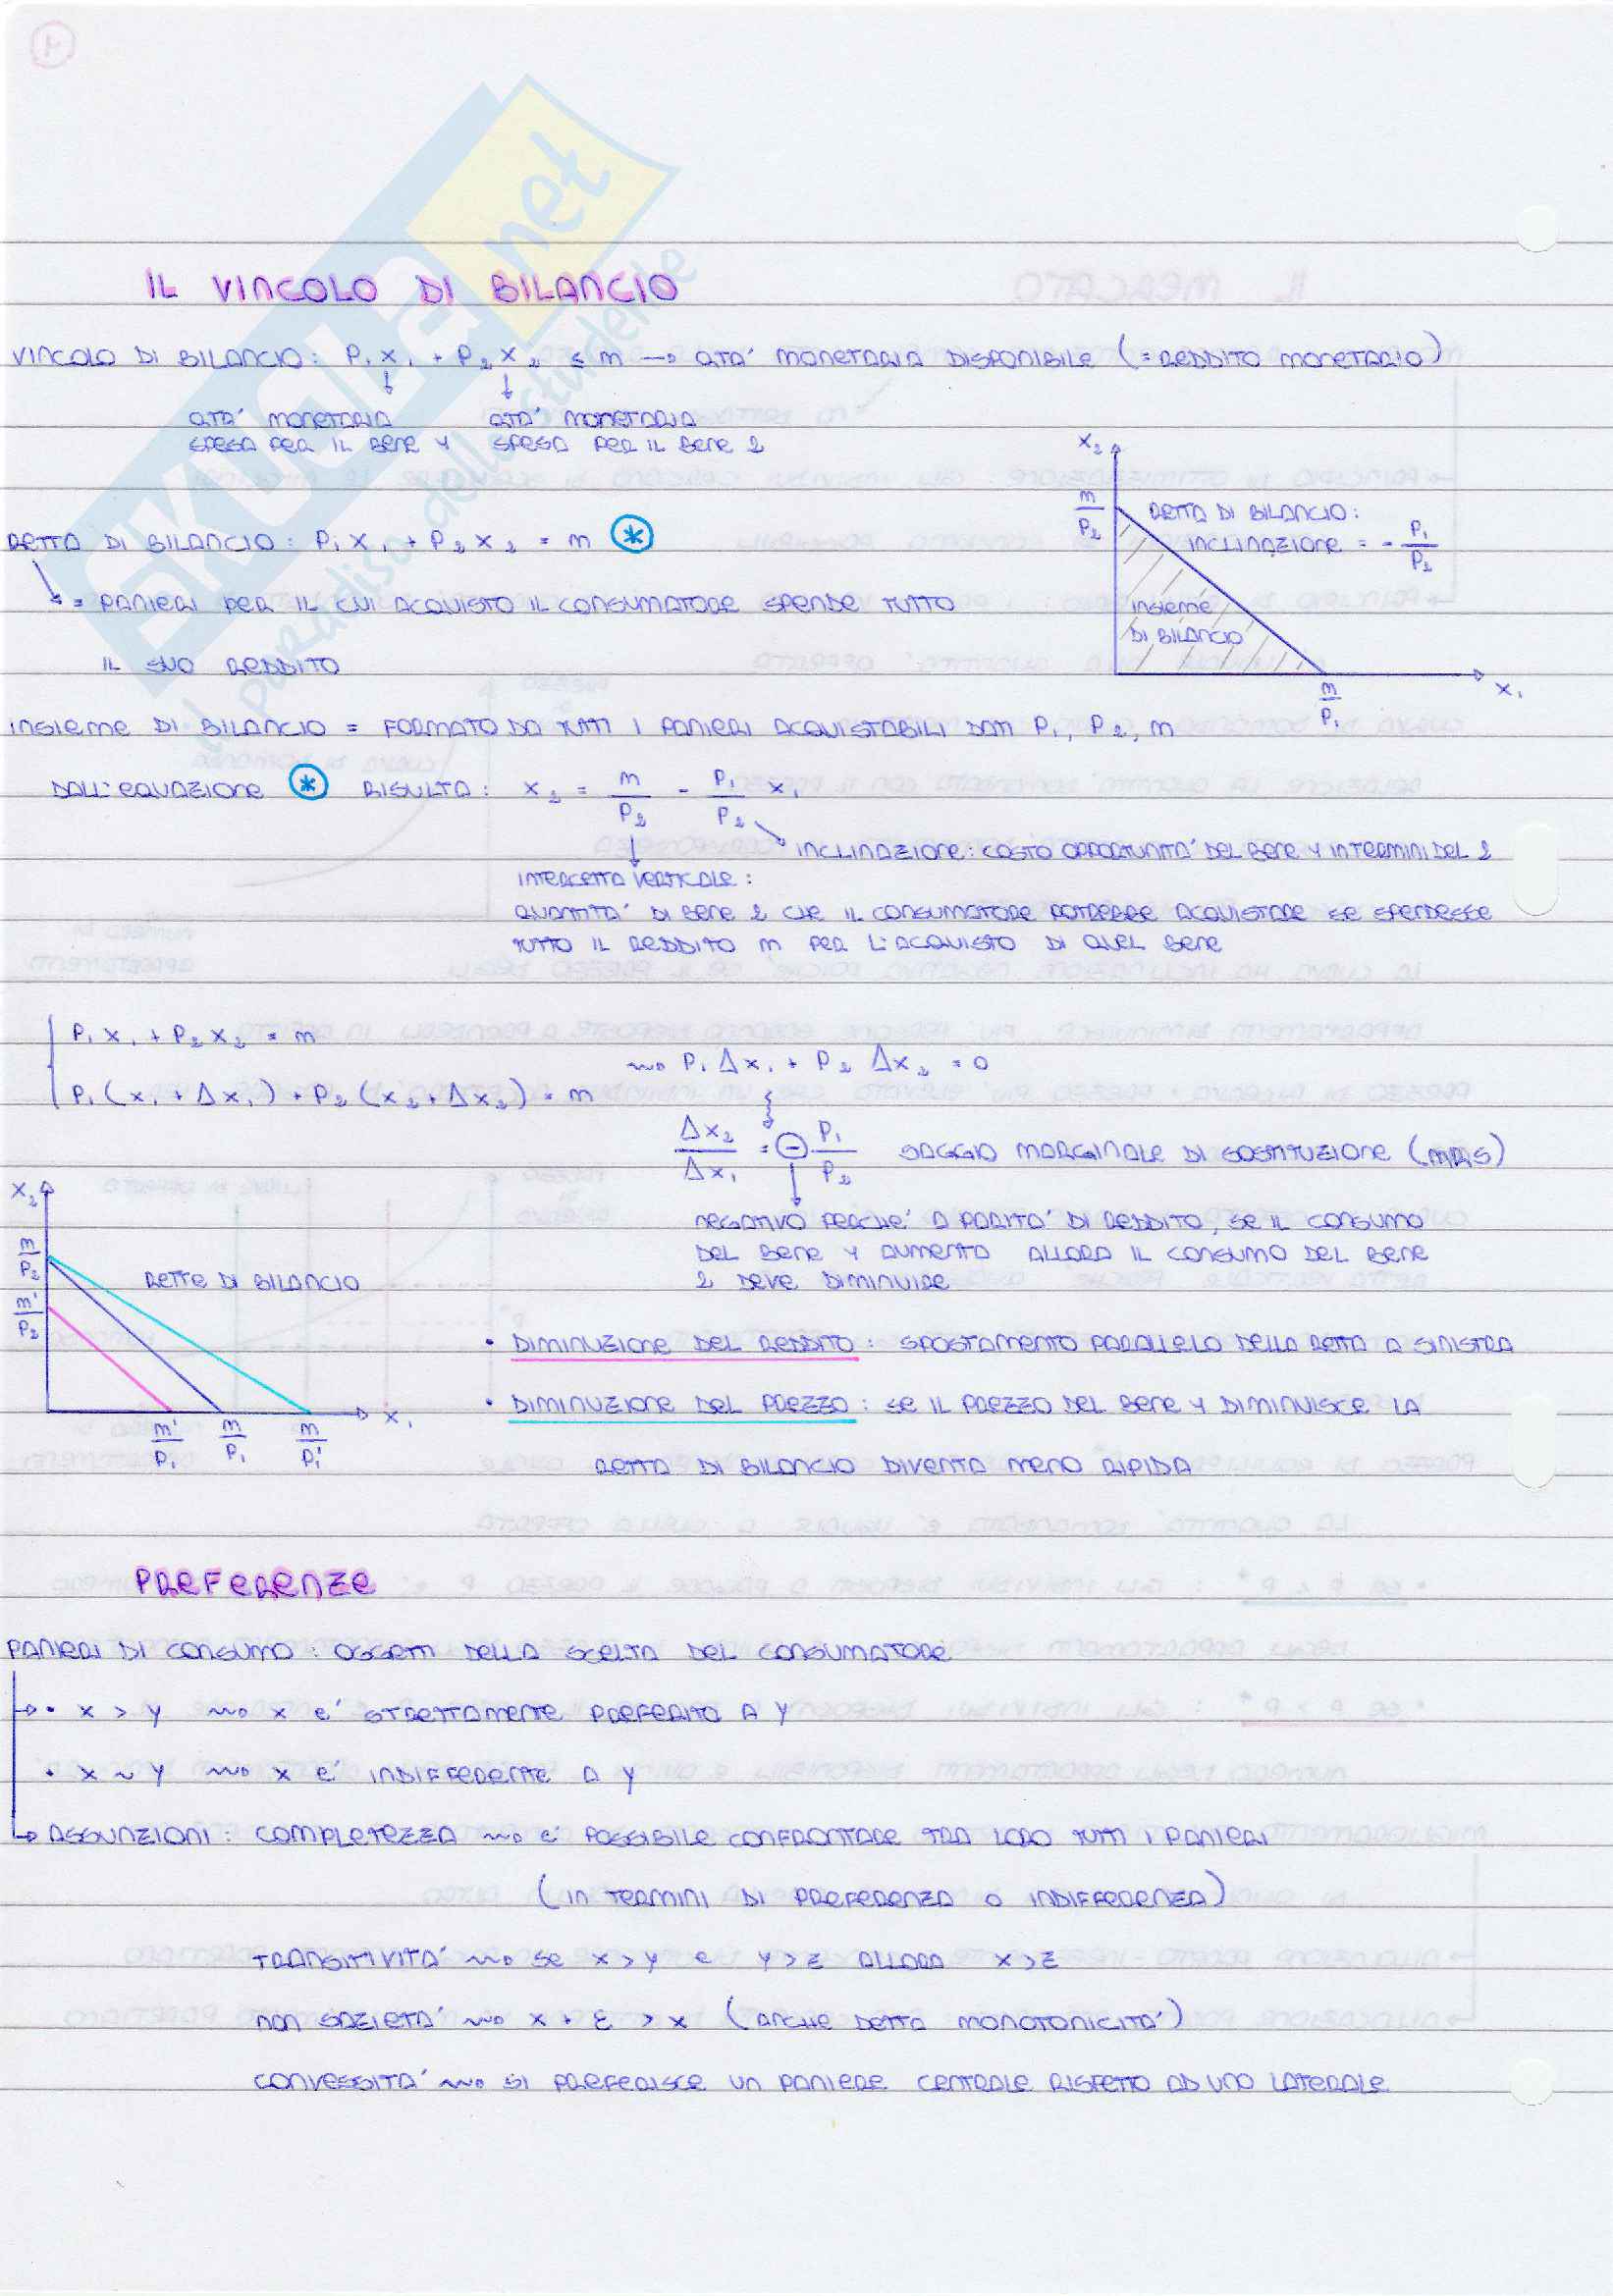 IL VINCOLO DI BILANCIO
VINCOLO DI BILANCIO: P₁X₁ + P₂X₂ ≤ m → QTA' MONETARIA DISPONIBILE (= REDDITO MONETARIO)
QTA' MONETARIA SPESA PER IL BENE 1
QTA' MONETARIA SPESA PER IL BENE 2
X₂
m/P₂
RETTA DI BILANCIO:
INCLINAZIONE = - P₁/P₂
INSIEME
DI BILANCIO
m/P₁
X₁
RETTA DI BILANCIO: P₁X₁ + P₂X₂ = m *
= PANIERI PER IL CUI ACQUISTO IL CONSUMATORE SPENDE TUTTO
IL SUO REDDITO
INSIEME DI BILANCIO = FORMATO DA TUTTI I PANIERI ACQUISTABILI DATI P₁, P₂, m
DALL'EQUAZIONE * RISULTA: X₂ = m/P₂ - P₁/P₂ X₁
INCLINAZIONE: COSTO OPPORTUNITA' DEL BENE 1 IN TERMINI DEL 2
INTERCETTA VERTICALE:
QUANTITA' DI BENE 2 CHE IL CONSUMATORE POTREBBE ACQUISTARE SE SPENDESSE
TUTTO IL REDDITO m PER L'ACQUISTO DI QUEL BENE
P₁X₁ + P₂X₂ = m
P₁(X₁ + ΔX₁) + P₂(X₂ + ΔX₂) = m
P₁ΔX₁ + P₂ΔX₂ = 0
ΔX₂/ΔX₁ = - P₁/P₂ SAGGIO MARGINALE DI SOSTITUZIONE (MRS)
NEGATIVO PERCHE' A PARITA' DI REDDITO, SE IL CONSUMO
DEL BENE 1 AUMENTA ALLORA IL CONSUMO DEL BENE
2 DEVE DIMINUIRE
X₂
m/P₂
m'/P₂
RETTE DI BILANCIO
m'/P₁ m/P₁ m/P₁'
X₁
• DIMINUZIONE DEL REDDITO: SPOSTAMENTO PARALLELO DELLA RETTA A SINISTRA
• DIMINUZIONE DEL PREZZO: SE IL PREZZO DEL BENE 1 DIMINUISCE LA
RETTA DI BILANCIO DIVENTA MENO RIPIDA
PREFERENZE
PANIERI DI CONSUMO: OGGETTI DELLA SCELTA DEL CONSUMATORE
• X > Y → X E' STRETTAMENTE PREFERITO A Y
• X ~ Y → X E' INDIFFERENTE A Y
ASSUNZIONI: COMPLETEZZA → E' POSSIBILE CONFRONTARE TRA LORO TUTTI I PANIERI
(IN TERMINI DI PREFERENZA O INDIFFERENZA)
TRANSITIVITA' → SE X > Y E Y > Z ALLORA X > Z
NON SAZIETA' → X + ε > X (ANCHE DETTA MONOTONICITA')
CONVESSITA' → SI PREFERISCE UN PANIERE CENTRALE RISPETTO AD UNO LATERALE
SKUOLA.net
il paradiso dello studente